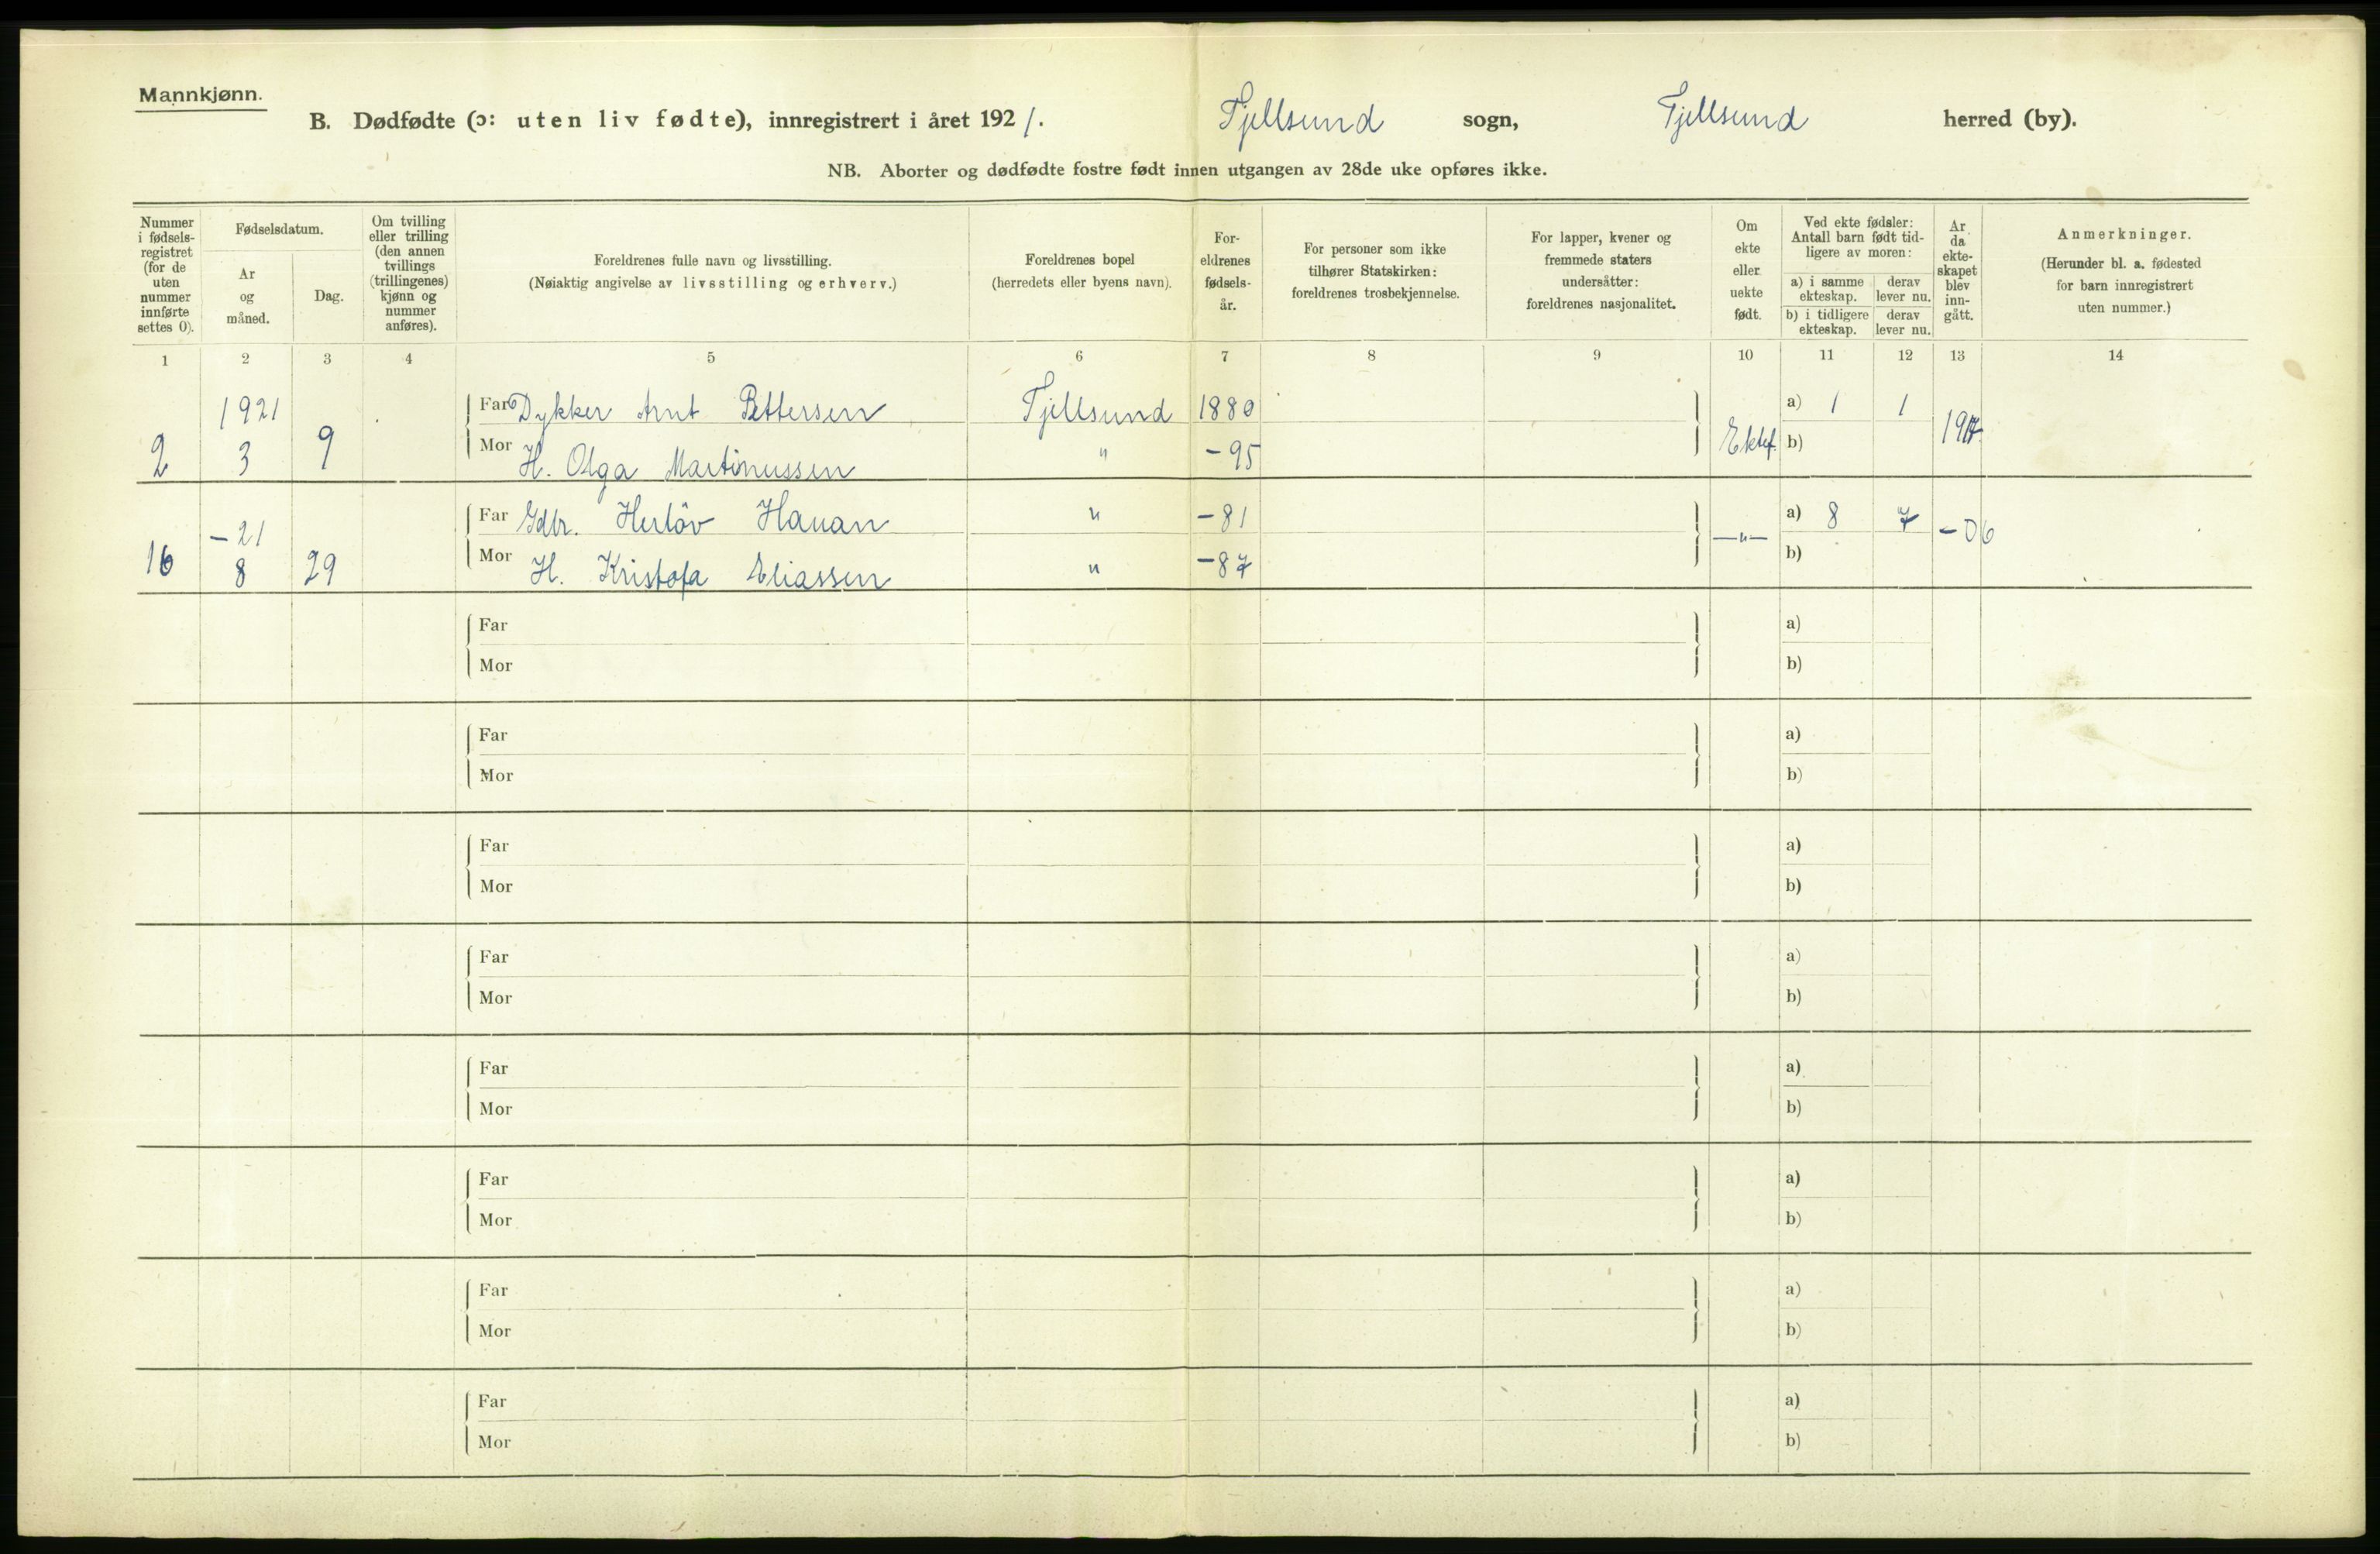 Mannkjønn.
B. Dødfødte (ɔ: uten liv fødte), innregistrert i året 1921. Tjellsund sogn, Tjellsund herred (by).
NB. Aborter og dødfødte fostre født innen utgangen av 28de uke opføres ikke.
Nummer i fødsels- registret (for de uten nummer innførte settes 0).
Fødselsdatum.
Ar og måned.
Dag.
Om tvilling eller trilling (den annen tvillings (trillingenes) kjønn og nummer anføres).
Foreldrenes fulle navn og livsstilling.
(Nøiaktig angivelse av livsstilling og erhverv.)
Foreldrenes bopel
(herredets eller byens navn).
For- eldrenes fødsels- år.
For personer som ikke tilhører Statskirken: foreldrenes trosbekjennelse.
For lapper, kvener og fremmede staters undersåtter: foreldrenes nasjonalitet.
Om ekte eller uekte født.
Ved ekte fødsler: Antall barn født tid- ligere av moren:
a) i samme ekteskap.
derav lever nu.
b) i tidligere ekteskap.
derav lever nu.
Ar da ekte- skapet blev inn- gått.
Anmerkninger.
(Herunder bl. a. fødested for barn innregistrert uten nummer.)
1 2 3 4 5 6 7 8 9 10 11 12 13 14
1921 Far Dykker Arnt Pettersen Tjellsund 1880 a) 1 1
2 3 9 Mor H. Olga Martinussen " -95 Ektef. b)
-21 Far Gdbr. Herlöv Hauan " -81 -"- a) 8 7 -06
16 8 29 Mor H. Kristofa Eliassen " -87 b)
Far a)
Mor b)
Far a)
Mor b)
Far a)
Mor b)
Far a)
Mor b)
Far a)
Mor b)
Far a)
Mor b)
Far a)
Mor b)
Far a)
Mor b)